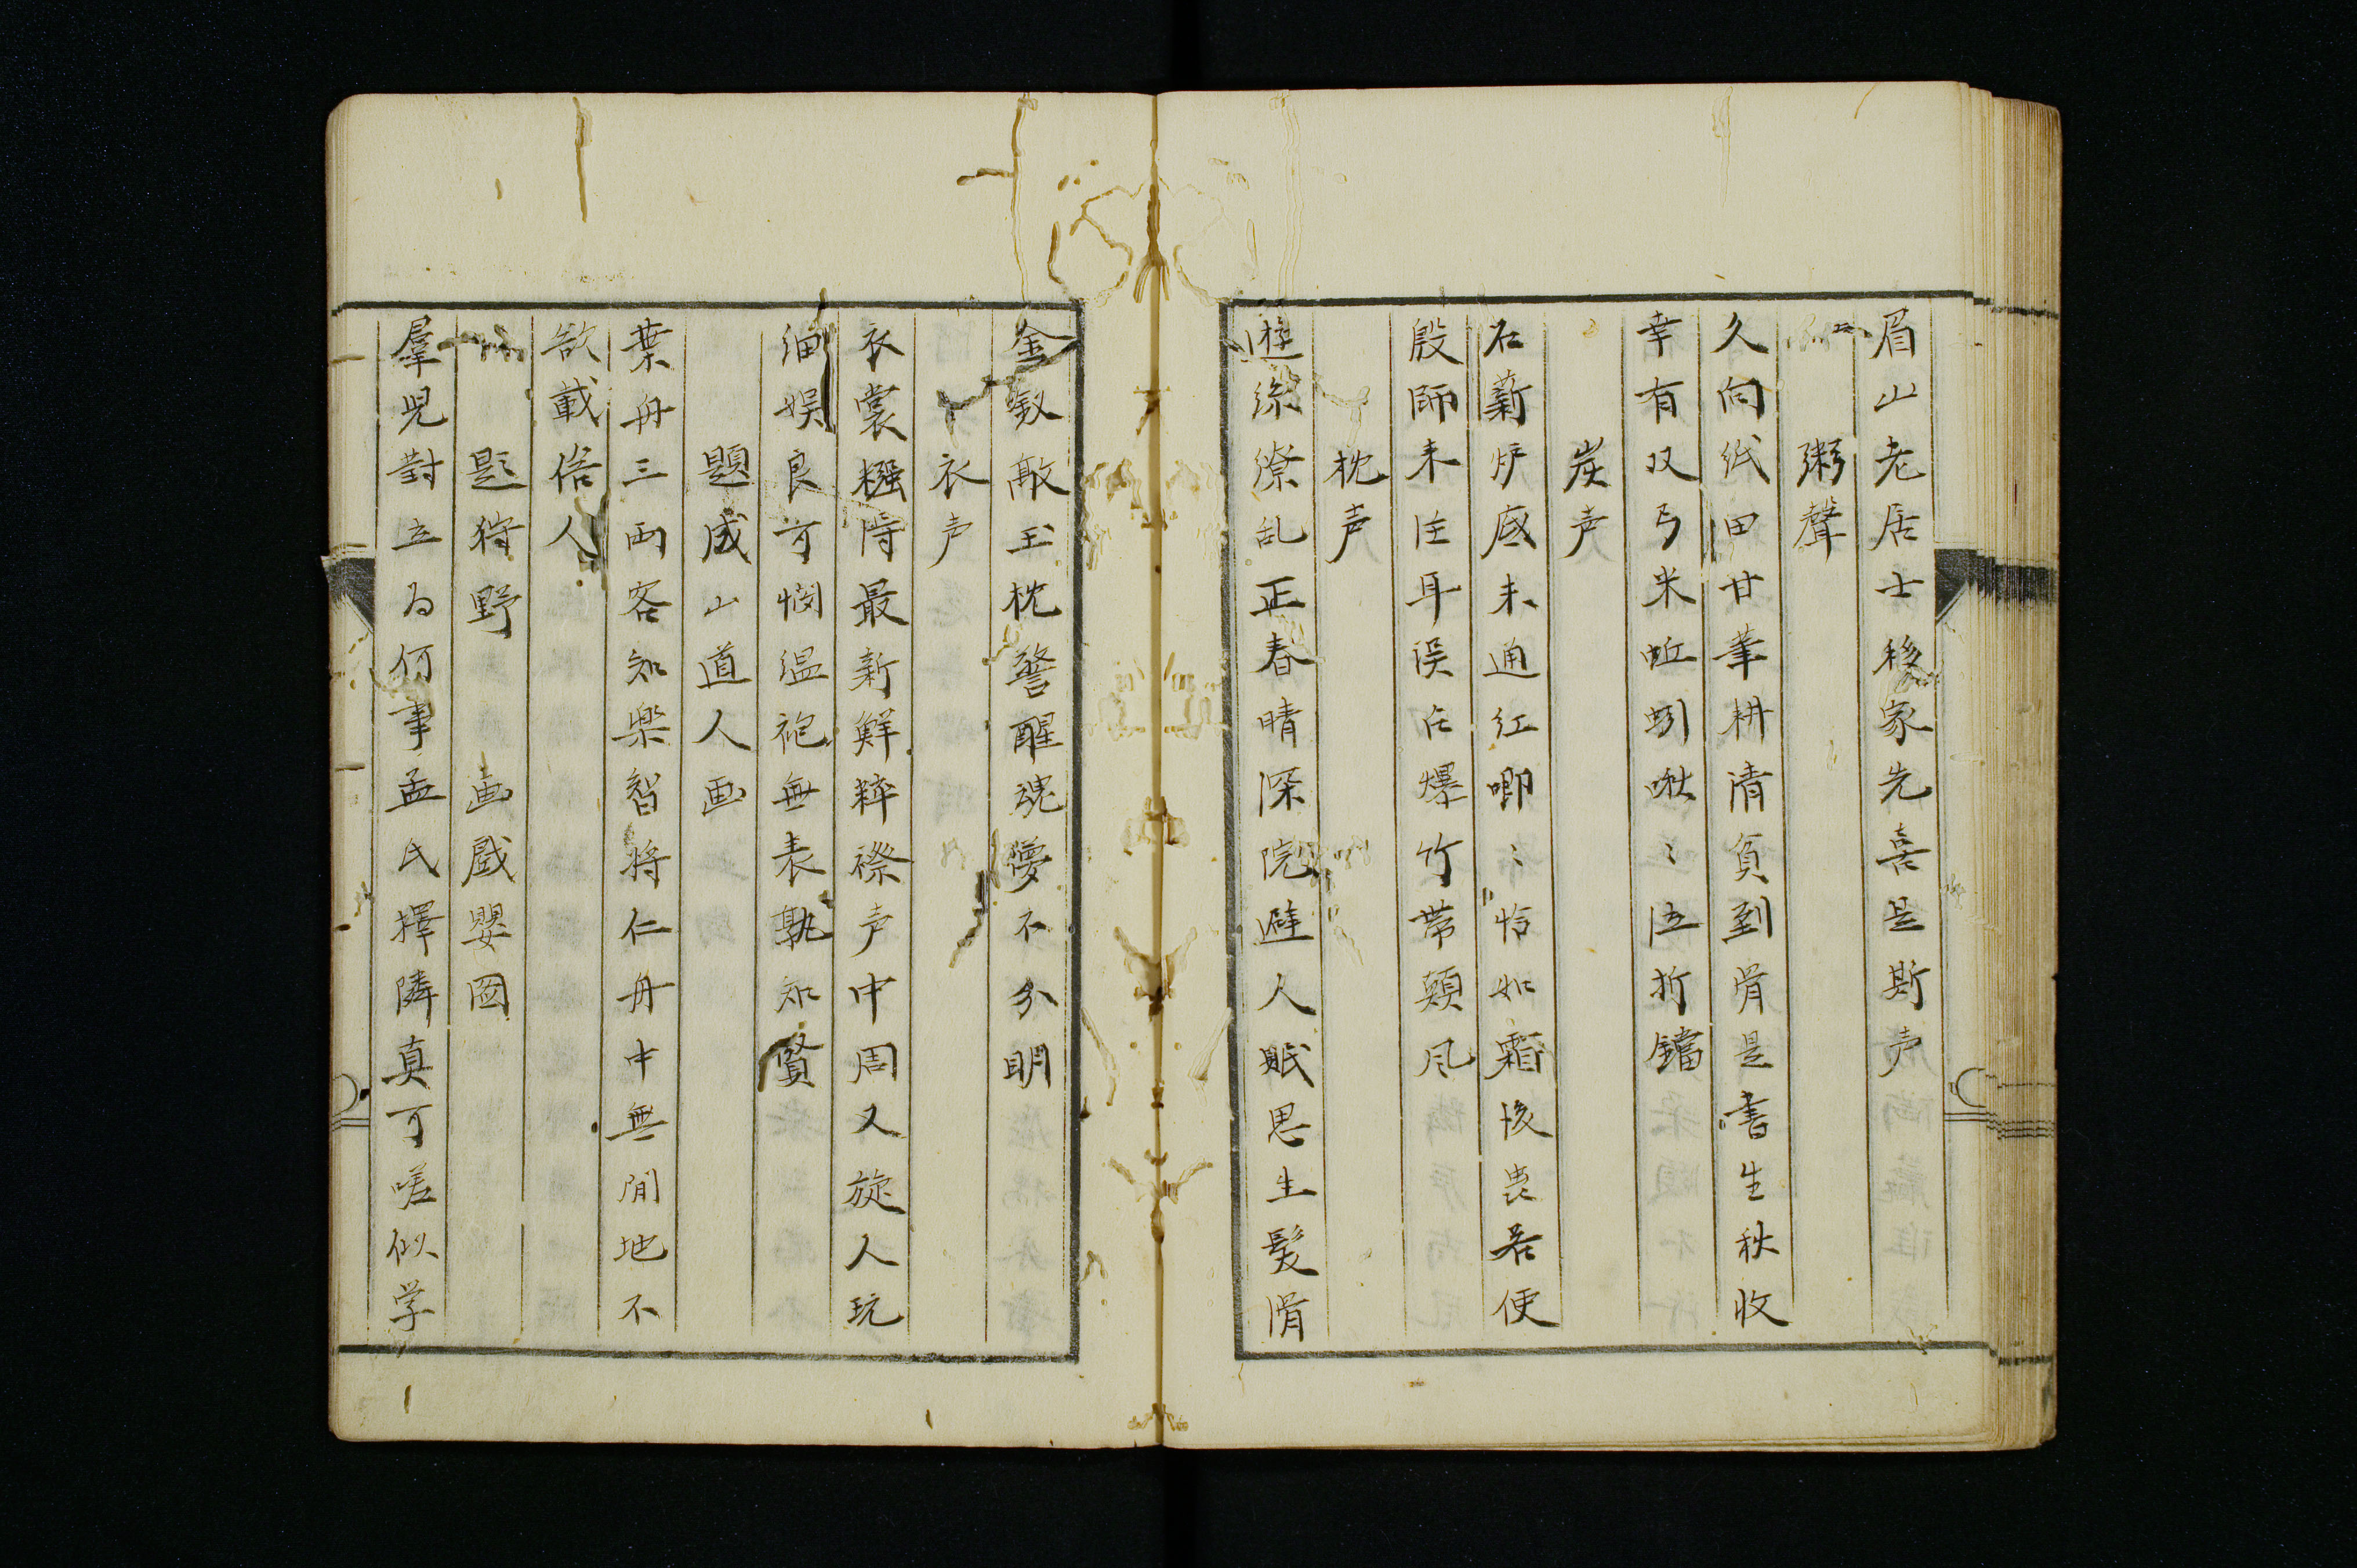 眉山老居士移家先喜是斯声
粥聲
久向紙田甘茟耕清貧到骨是書生秋收
幸有双弓米蚯蚓啾〻沍折鐺
炭声
石薪炉底未通红唧〻恰如霜後虫若便
殷師来注耳误任爆竹帶頬风
枕声
遊絲繚乱正春晴深院避人眠思生髪滑
金釵敲玉枕警醒魂夢不分明
衣声
衣裳襁時最新鮮粹襟声中周又旋人玩
細娯良可憫温袍無表孰知賢
題成山道人画
葉舟三両客知楽智将仁舟中無閒地不
欲載俗人
題狩野 画戯嬰図
羣児對立为何事孟氏擇隣真可嗟似学